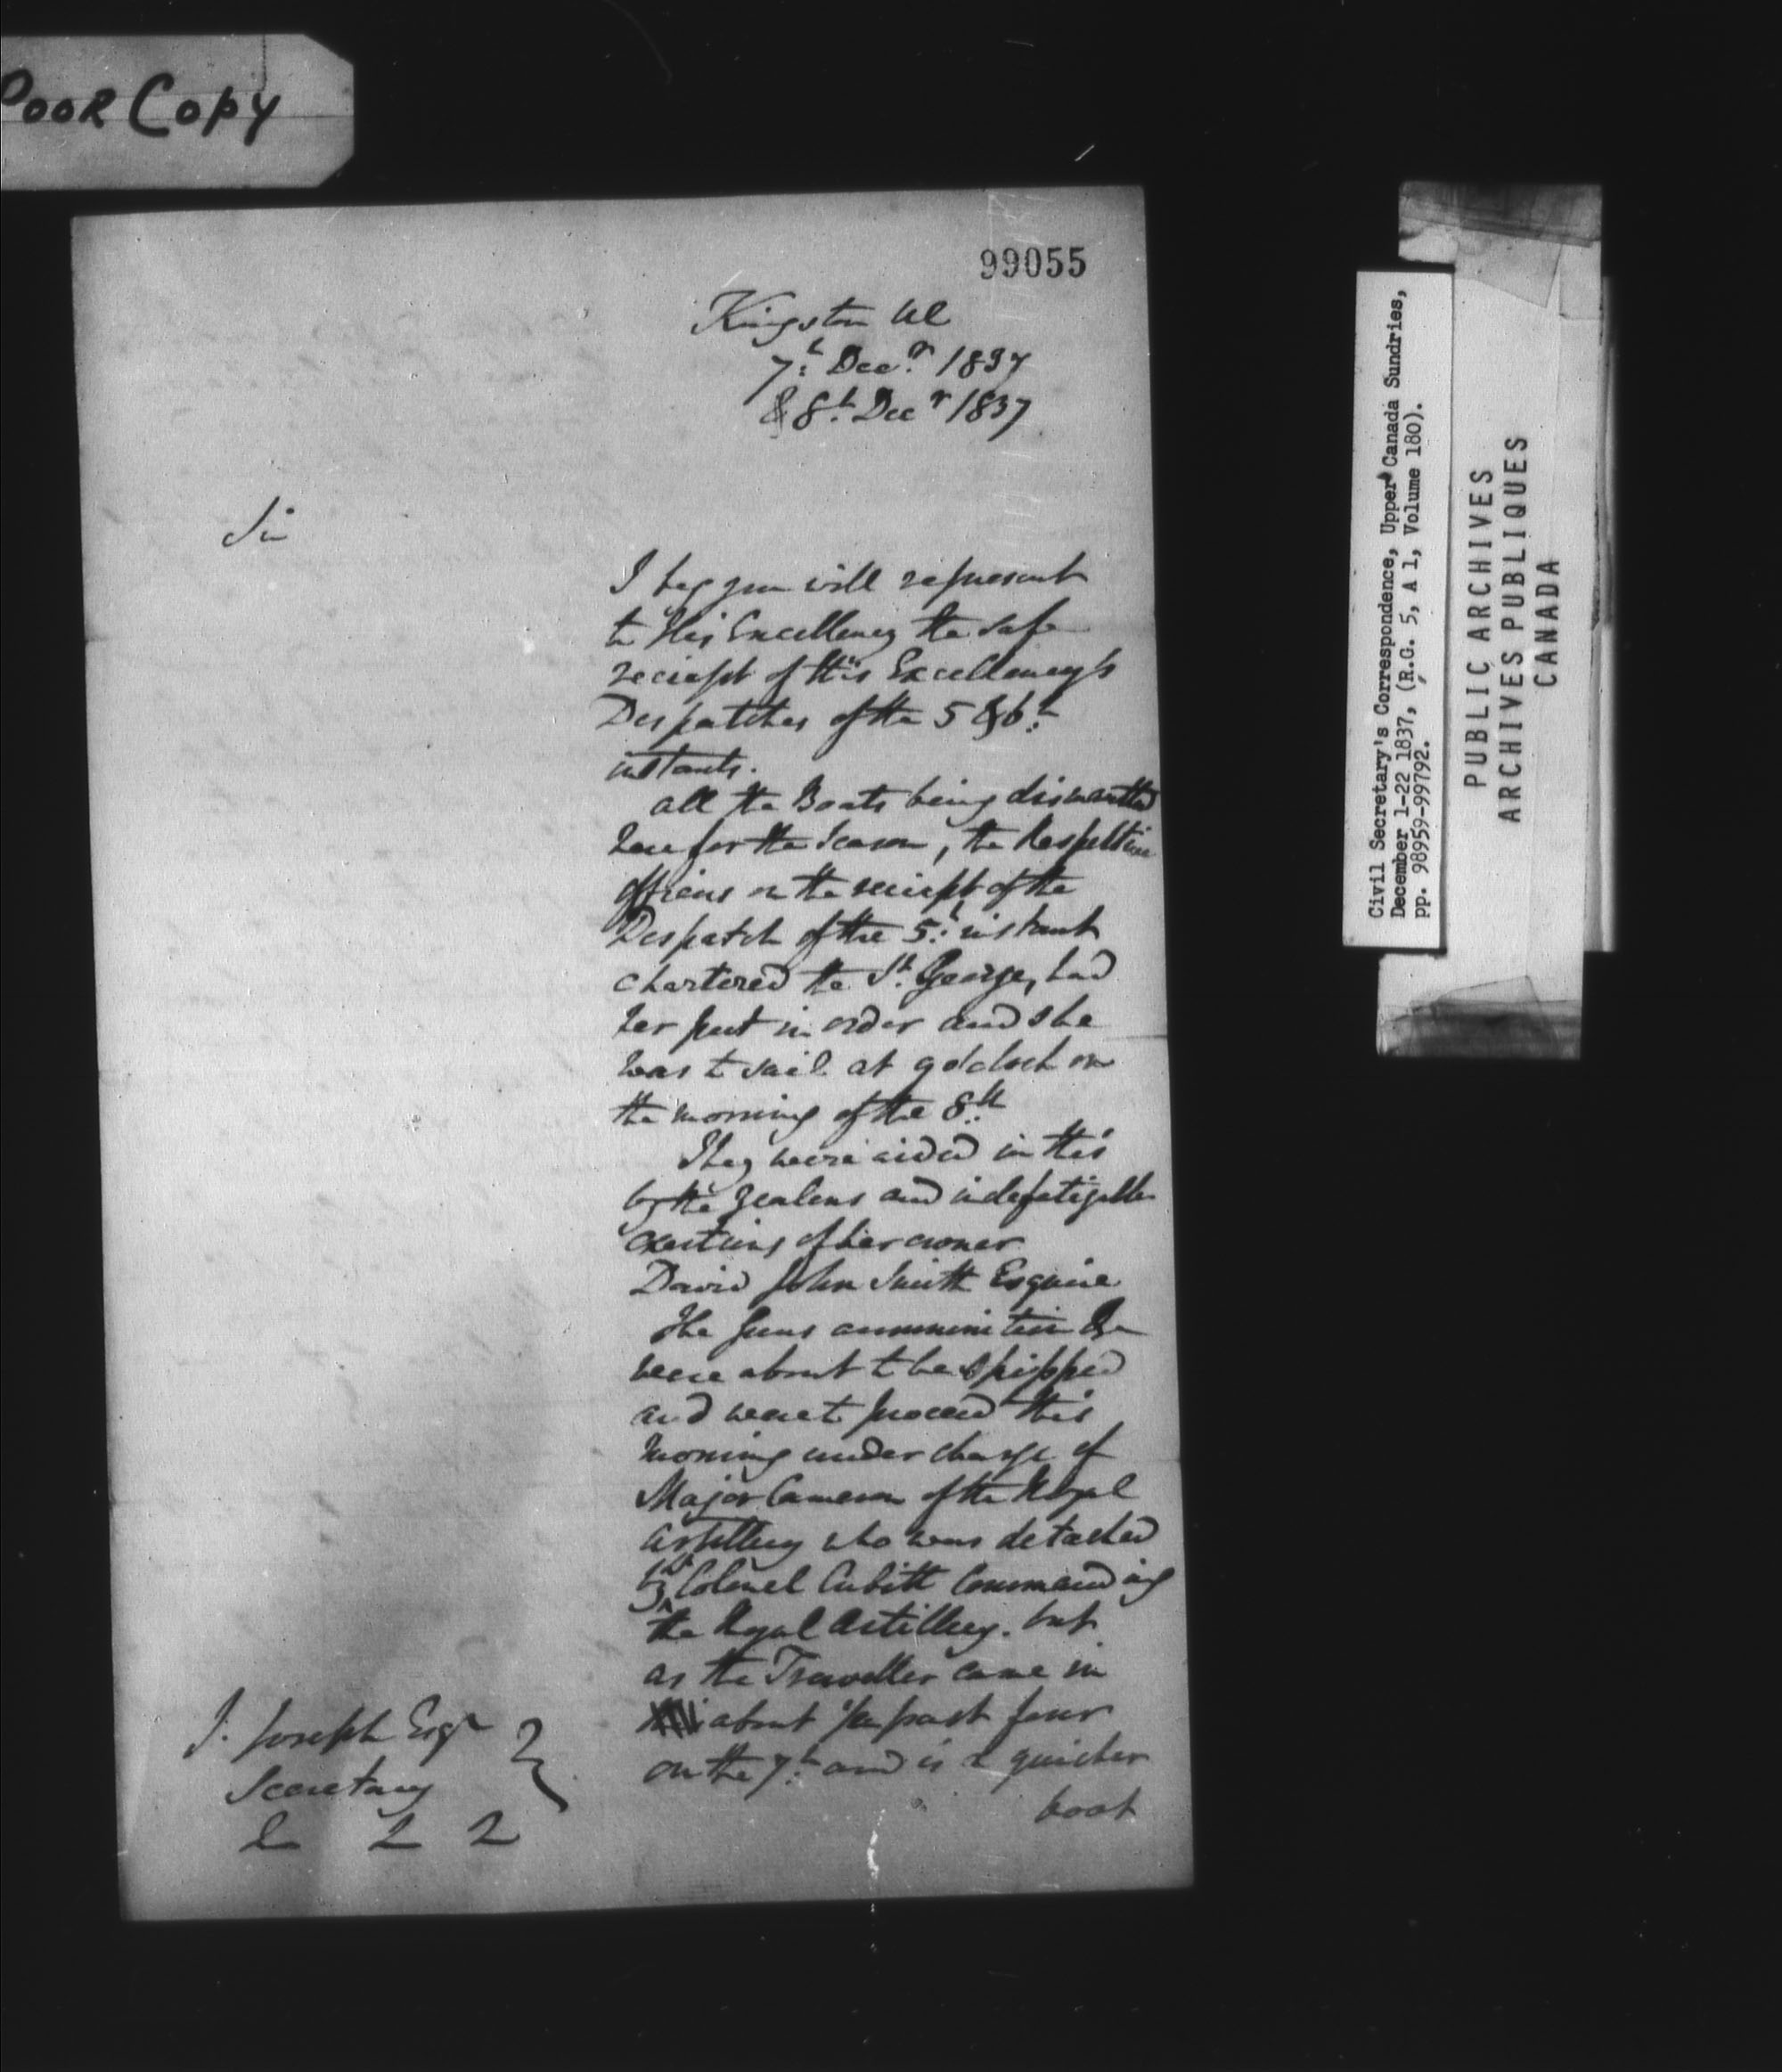 POOR COPY
99055
Kingston UC
7th Decr 1837
& 8th Decr 1837
Sir
I beg you will represent
to His Excellency the safe
reciept of His Excellency's
Despatches of the 5 & 6th
instants.
All the Boats being dismantled
here for the Season, the Respective
officers on the reciept of the
Despatch of the 5th instant
chartered the St. George, had
her put in order and she
was to sail at 9 oClock on
the morning of the 8th
They were aided in this
by the zealous and indefatigable
exertions of her owner
David John Smith Esquire
The Guns ammunition &c
were about to be shipped
and were to proceed this
morning under charge of
Major Cameron of the Royal
Artillery who was detached
by Lt Colonel Cubitt Commanding
the Royal Artillery. but
as the Traveller came in
about 1/2 past four
on the 7th and is a quicker
boat
J. Joseph Esqr
Secretary
&c &c &c
Civil Secretary's Correspondence, Upper Canada Sundries,
December 1-22 1837, (R.G. 5, A 1, Volume 180).
pp. 98959-99792.
PUBLIC ARCHIVES
ARCHIVES PUBLIQUES
CANADA